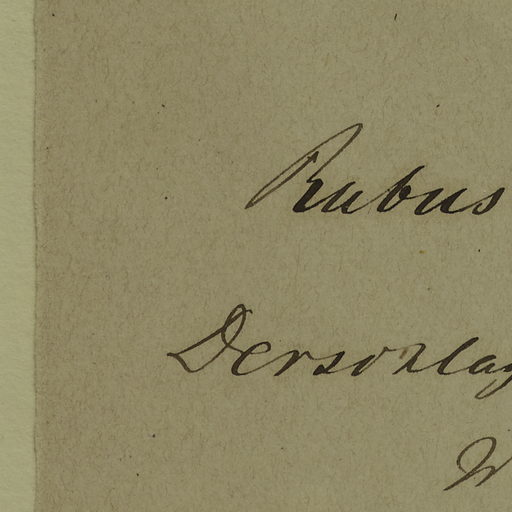 Rubus
Derschlag